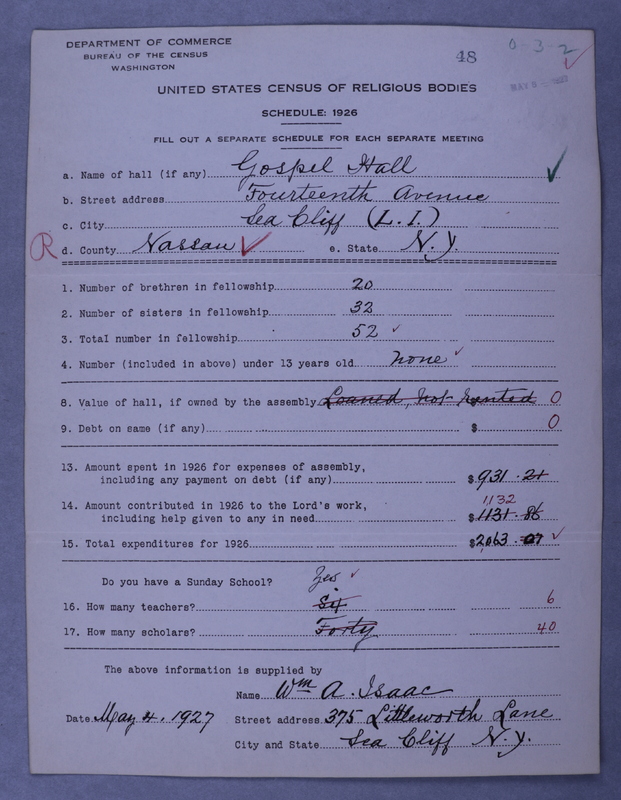 DEPARTMENT OF COMMERCE
BUREAU OF THE CENSUS
WASHINGTON
48
0-3-2
UNITED STATES CENSUS OF RELIGIOUS BODIES
SCHEDULE: 1926
FILL OUT A SEPARATE SCHEDULE FOR EACH SEPARATE MEETING
a. Name of hall (if any) Gospel Hall
b. Street address Fourteenth Avenue
c. City Sea Cliff (L.I.)
R d. County Nassau e. State N.Y.
1. Number of brethren in fellowship 20
2. Number of sisters in fellowship 32
3. Total number in fellowship 52
4. Number (included in above) under 13 years old none
8. Value of hall, if owned by the assembly Loaned, not rented $ 0
9. Debt on same (if any) $ 0
13. Amount spent in 1926 for expenses of assembly,
including any payment on debt (if any) $ 931.21
14. Amount contributed in 1926 to the Lord's work, 1132
including help given to any in need $ 1131.86
15. Total expenditures for 1926 $ 2063.07
Do you have a Sunday School? Yes
16. How many teachers? Six 6
17. How many scholars? Forty 40
The above information is supplied by
Name Wm A. Isaac
Date May 4. 1927 Street address 375 Littleworth Lane
City and State Sea Cliff N.Y.